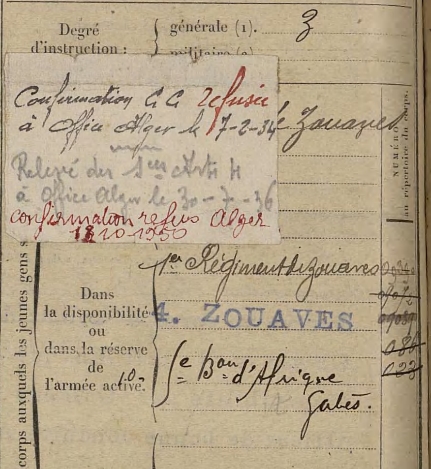 Degré
d'instruction :
générale (1).
3
militaire (2)
Confirmation C C refusée
à Office Alger le 7-2-34
Zouaves
Relevé des Sces Arti 4
à Office Alger le 30-7-36
confirmation refus Alger
18 10-1950
NUMÉRO
au répertoire du corps.
corps auxquels les jeunes gens s
Dans
la disponibilité
ou
dans la réserve
de
l'armée active.
1er Régiment de Zouaves
4. ZOUAVES
5e Bon d'Afrique
Gabès.